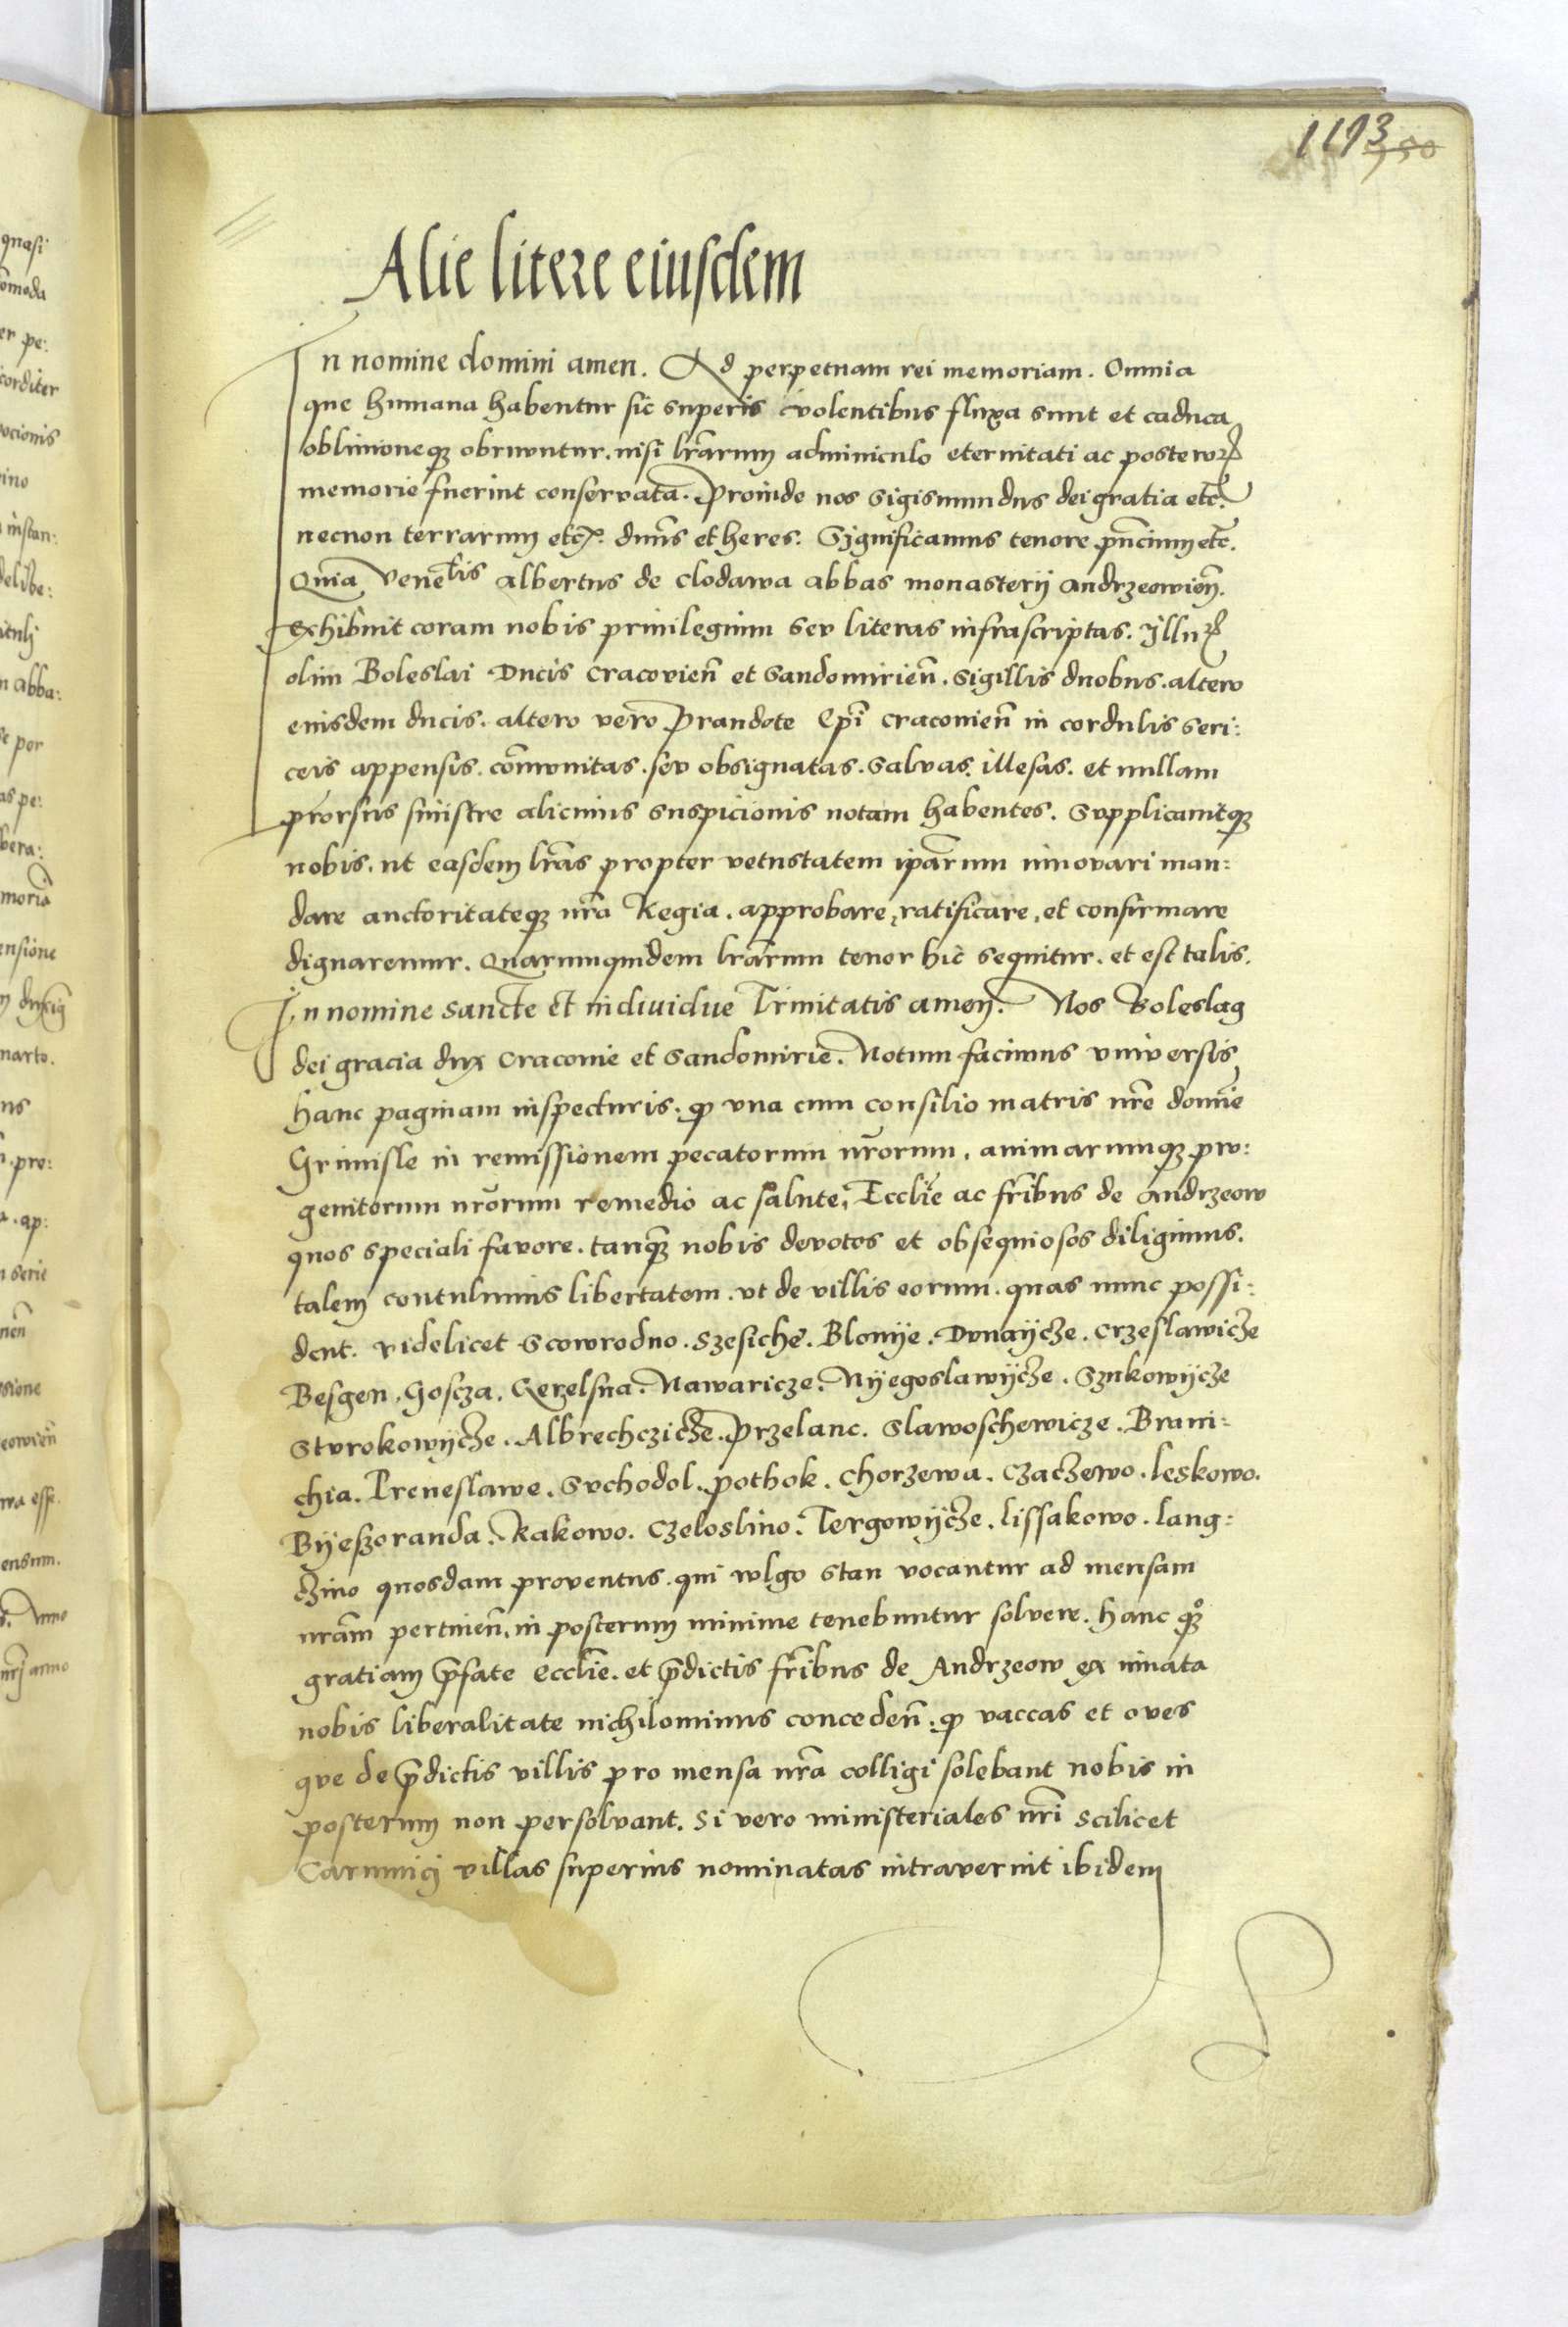 1193 950
Alie litere eiusdem
In nomine domini amen. Ad perpetuam rei memoriam. Omnia
que humana habentur sic superis volentibus fluxa sunt et caduca
oblivioneqꝫ obruuntur. nisi lr̃arum adminiculo eternitati ac posteroꝝ
memorie fuerint conservata. Proinde nos Sigismundus dei gratia etc̃.
necnon terrarum etcꝫ. dnu̅s et heres. Significamus tenore pñcium etc̃.
Quia Venelis Albertus de Clodawa abbas monasterij Andrzeowien̄.
exhibuit coram nobis privilegium seu literas infrascriptas. Illuꝝ
olim Boleslai Ducis Cracovien̄ et Sandomirien̄. sigillis duobus. altero
eiusdem ducis. altero vero Prandote Ep̄i Cracovien̄ in cordulis seri:
ceis appensis. com̄unitas. seu obsignatas. salvas. illesas. et nullam
prorsus sinistre alicuius suspicionis notam habentes. Supplicavitqꝫ
nobis. ut easdem lr̃as propter vetustatem ip̄arum innovari man:
dare auctoritateqꝫ nr̃a Regia. approbare, ratificare, et confirmare
dignaremur. Quarumquidem lr̃arum tenor hic sequitur. et est talis.
In nomine sancte et individue Trinitatis amen. Nos Boleslaꝰ
dei gracia dux Cracovie et Sandomirie. Notum facimus universis
hanc paginam inspecturis. ꝙ una cum consilio matris nr̃e domine
Grimisle in remissionem pecatorum nr̃orum, animarumqꝫ pro:
genitorum nr̃orum remedio ac salute, Eccl̃ie ac fr̃ibus de Andrzeow
quos speciali favore. tanqꝫ nobis devotos et obsequiosos diligimus.
talem contulimus libertatem. ut de villis eorum. quas nunc possi:
dent. videlicet Scowrodno. Szesiche. Blonije. Dunaijcze. Crzeslawicze
Besgen. Goscza. Gerzelsna. Nawaricze. Nijegoslawijcze. Sznkowijcze
Sturokowijcze. Albrechczicze. Przelanc. Slawoschewicze. Brani:
chia. Preneslawe. Suchodol. Pothok. Chorzewa. Czaczewo. Leskowo.
Bijeszoranda. Rakowo. Czeloslino. Tergowijcze. Lissakowo. Lang:
czino quosdam proventus. qui wlgo Stan vocantur ad mensam
nr̃am pertinen̄. in posterum minime tenebuntur solvere. Hanc qꝫ
gratiam p̄fate eccl̃ie. et p̄dictis fr̃ibus de Andrzeow ex innata
nobis liberalitate nichilominus conceden̄. ꝙ vaccas et oves
que de p̄dictis villis pro mensa nr̃a colligi solebant nobis in
posterum non persolvant. Si vero ministeriales nr̃i scilicet
Carnnici villas superius nominatas intraverint ibidem